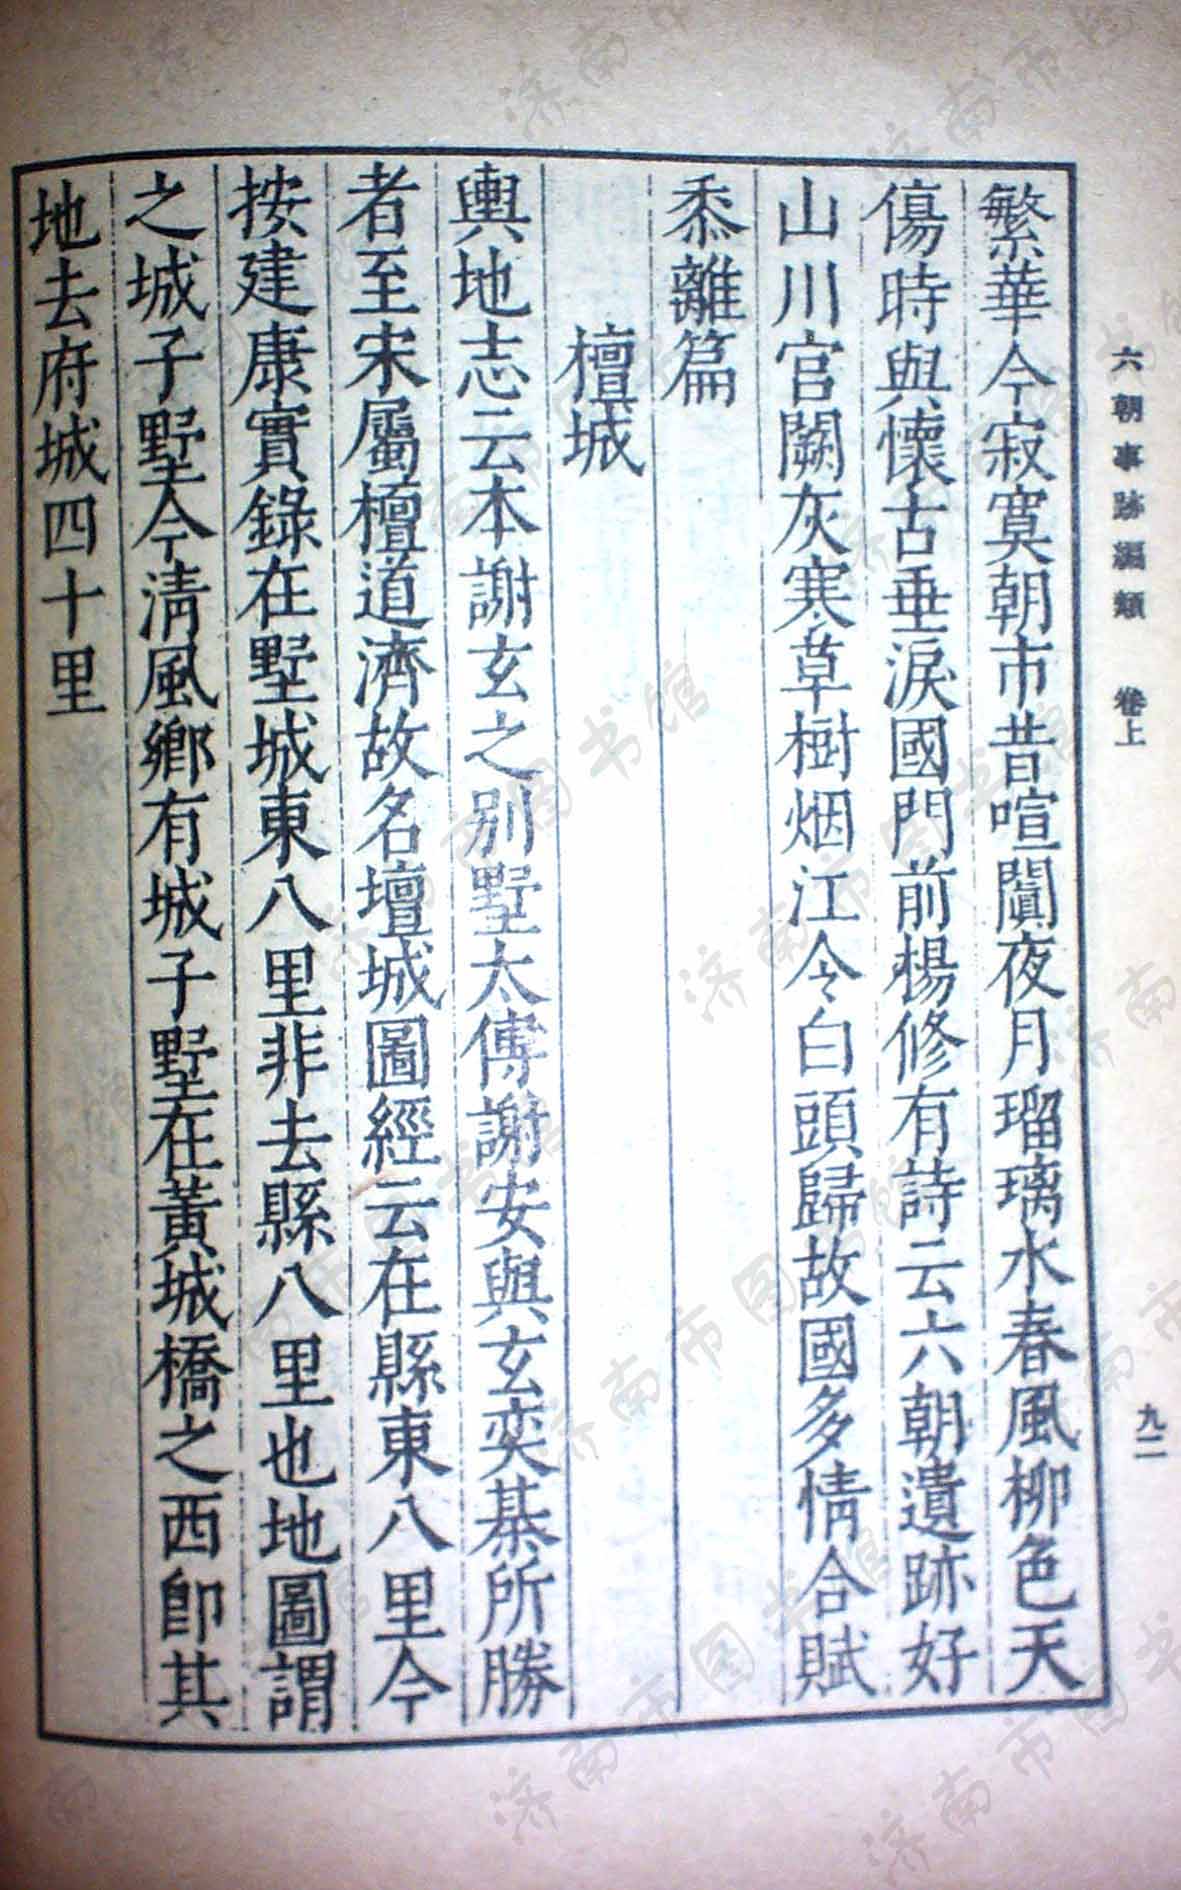 六朝事跡編類 卷上
九二
繁華今寂寞朝市昔喧闐夜月瑠璃水春風柳色天
傷時與懷古垂淚國門前楊修有詩云六朝遺跡好
山川宮闕灰寒草樹烟江令白頭歸故國多情合賦
黍離篇
檀城
輿地志云本謝玄之別墅太傅謝安與玄奕棊所勝
者至宋屬檀道濟故名壇城圖經云在縣東八里今
按建康實錄在墅城東八里非去縣八里也地圖謂
之城子墅今清風鄉有城子墅在黃城橋之西卽其
地去府城四十里
济南市图书馆